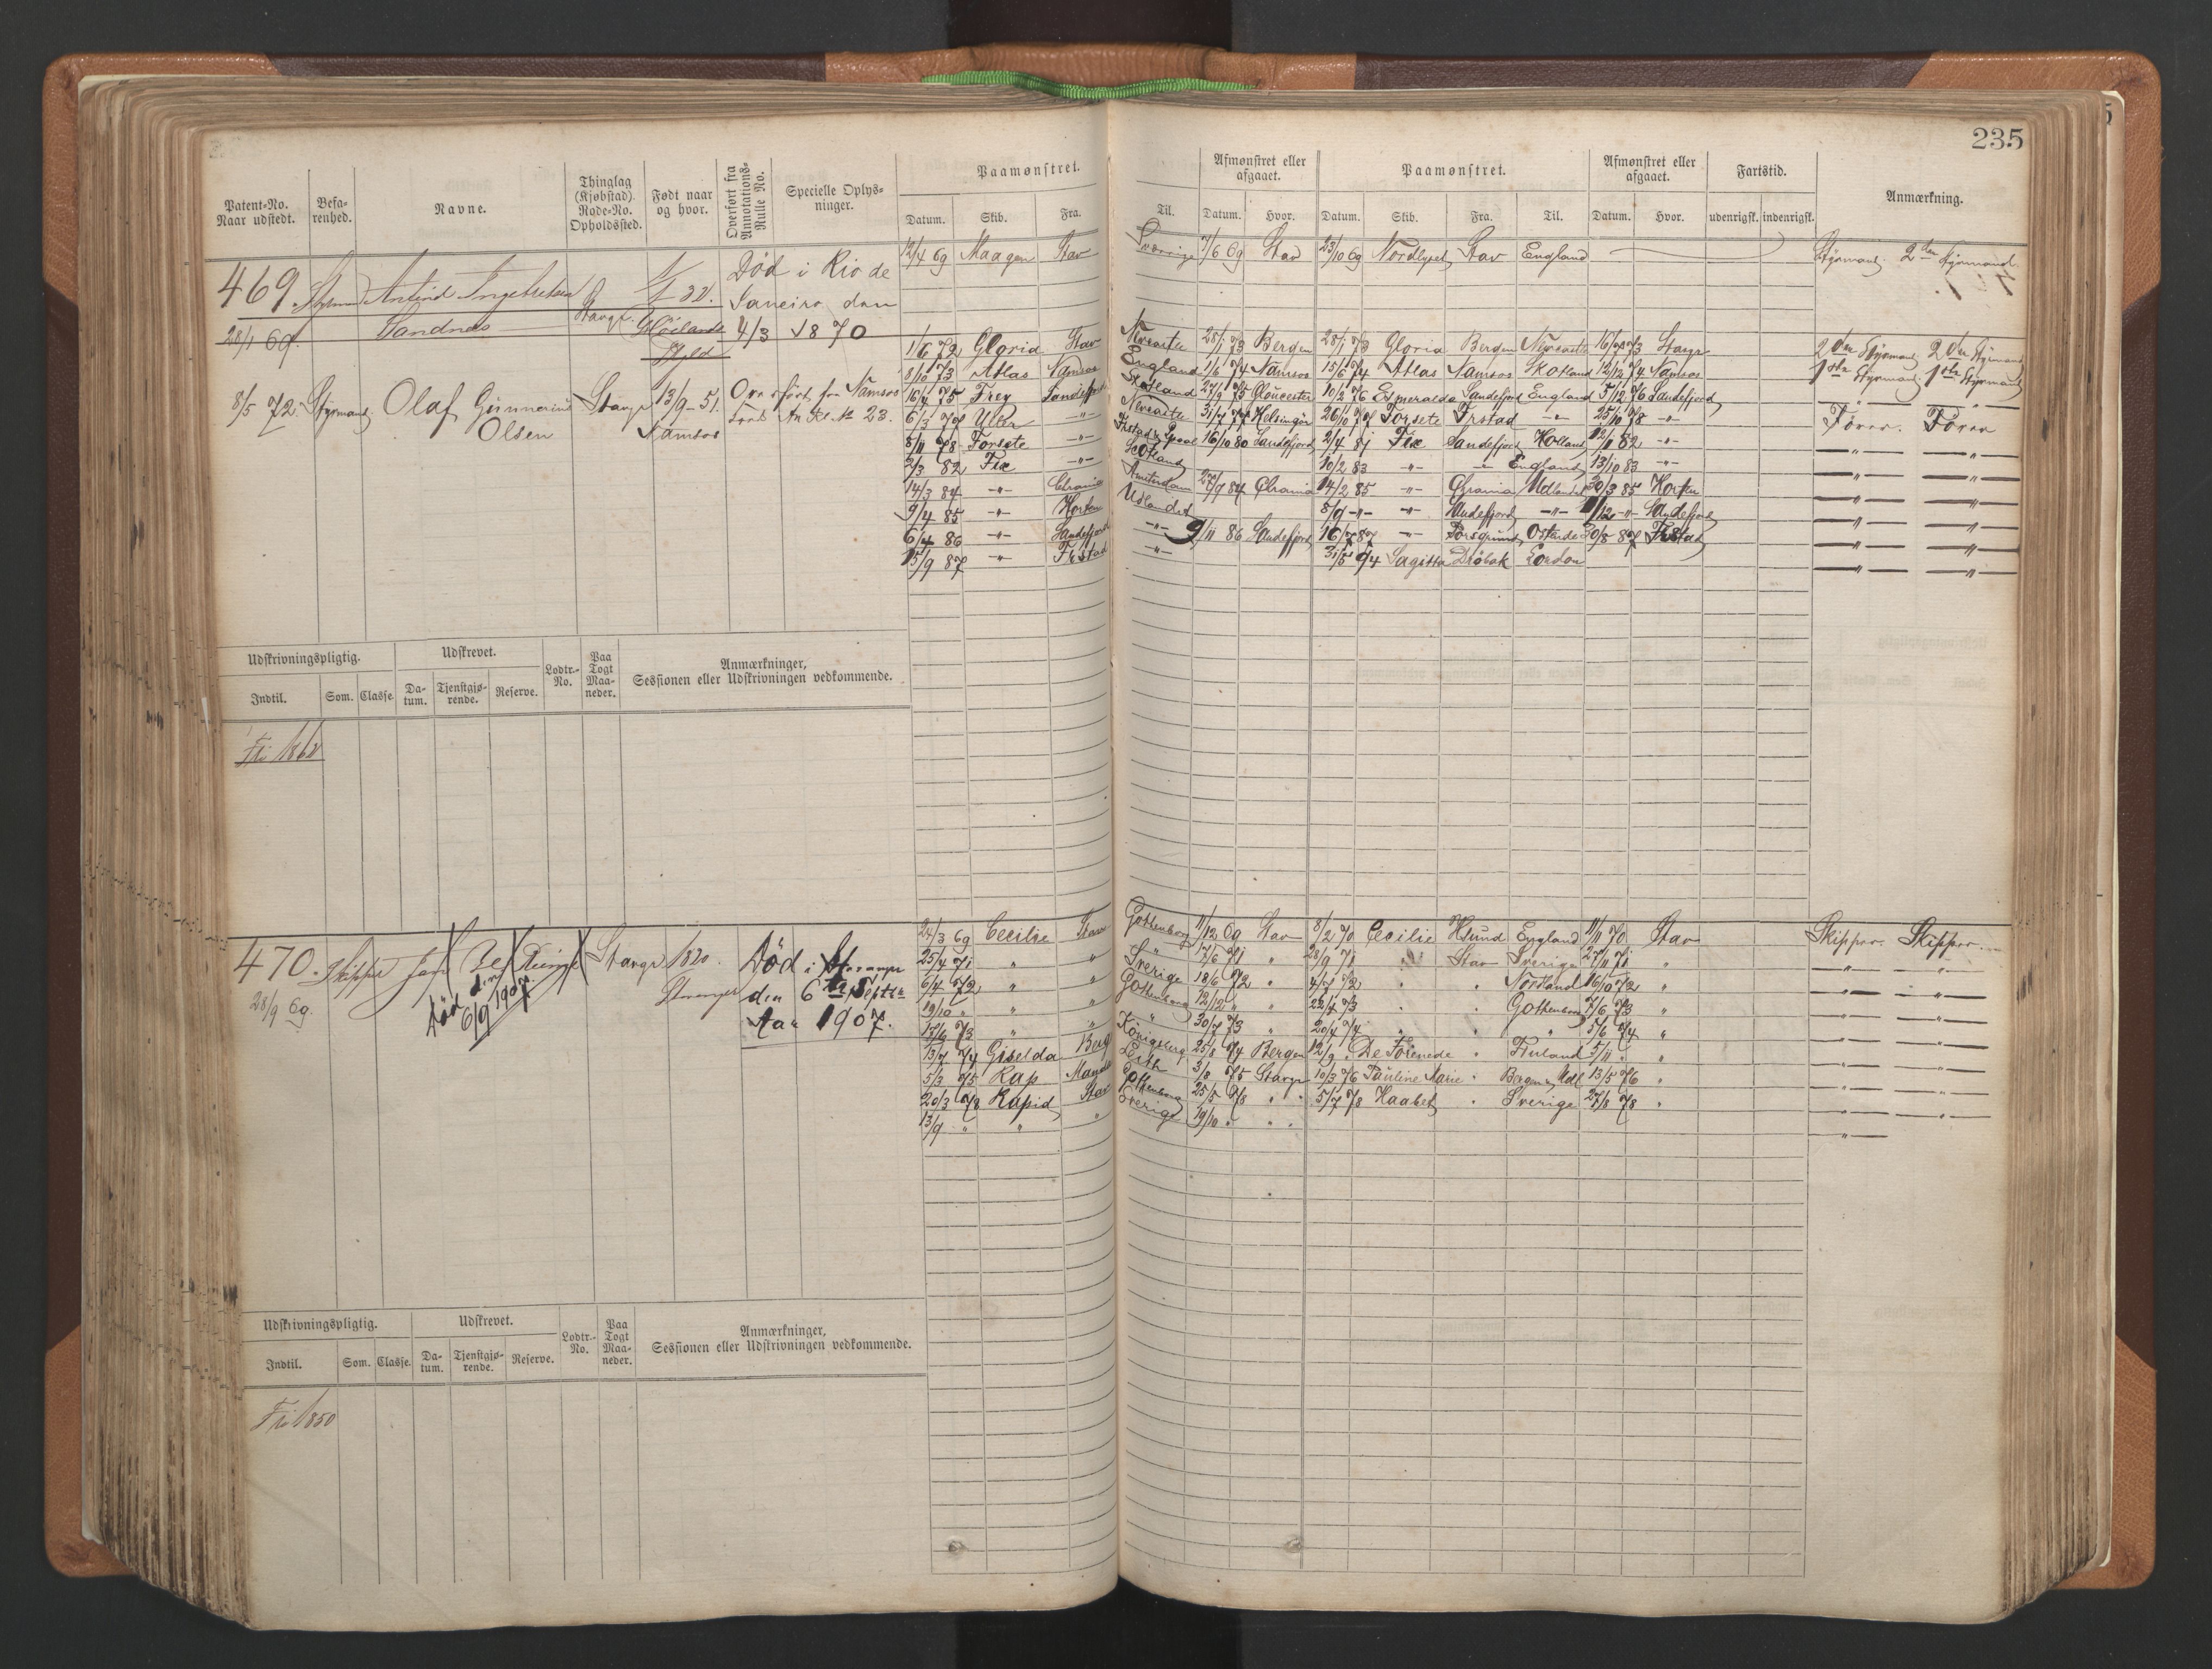 235
Patent-No. Naar udstedt. Befarenhed. Navne. Thinglag (Kjøbstad). Rode-No. Opholdssted. Født naar og hvor. Overført fra Annotations-Rulle No. Specielle Oplysninger. Paamønstret. Datum. Skib. Fra.
Til. Afmønstret eller afgaaet. Datum. Hvor. Paamønstret. Datum. Skib. Fra. Til. Afmønstret eller afgaaet. Datum. Hvor. Fartstid. udenrigsk. indenrigsk. Anmærkning.
469. Død i Rio de
Janeiro den
4/3 1870
28/1 69. Sandnes Stavgr.
12/4 69 Maagen Stav
7/6 69 Stav 23/10 69 Nordlyset Stav England Styrmand 2den Styrmand
8/5 72. Styrmand Olaf Gunnerius
Olsen
Stavgr 13/9-51.
Namsos
Overført fra Namsos
1/6 72 Gloria Stav
8/10 73 Atlas Namsos
16/4 75 Frey Sandefjord
6/3 77 Uller -"-
8/11 78 Forsete -"-
2/3 82 Fix -"-
14/3 84 -"- Chrania
9/4 85 -"- Horten
6/4 86 -"- Sandefjord
15/9 87 -"- Frstad
28/1 73 Bergen 28/1 73 Gloria Bergen Stavgr 2den Styrmand 2den Styrmand
England 1/6 74 Namsos 15/6 74 Atlas Namsos Skotland 12/12 74 Namsos 1ste Styrmand 1ste Styrmand
Skotland 27/9 75 Gloucester 10/2 76 Esmeralda Sandefjord England 5/12 76 Sandefjord
31/7 77 Helsingør 26/10 77 Forsete Frstad -"- 25/10 78 -"- Fører. Fører
16/10 80 Sandefjord 2/4 81 Fix Sandefjord Holland 12/11 82 -"- -"- -"-
Skotland 10/2 83 -"- -"- England 13/10 83 -"- -"- -"-
Amsterdam 27/9 84 Chrania 14/2 85 -"- Chrania Udlandet 30/3 85 Horten -"- -"-
Udlandet 8/9 -"- -"- Sandefjord -"- -"- Sandefjord -"- -"-
-"- 9/11 86 Sandefjord -"- Porsgrund Ostende 30/8 87 Frstad -"- -"-
-"- 31/5 94 Sagitta Drøbak London -"- -"-
Udskrivningspligtig. Indtil. Som. Classe. Udskrevet. Datum. Tjenstgjørende. Reserve. Lodtr.-No. Paa Togt Maaneder. Anmærkninger, Sessionen eller Udskrivningen vedkommende.
470. Skipper Stavgr 1820. Død i Stavanger
Stavanger den 6te Septbr
28/9 69. Død den 6/9 1907. Aar 1907.
24/3 69 Cecilie Stav
25/4 71 " "
6/4 72 " "
19/10 " " "
15/6 73 " "
13/7 74 Giselda Berg
5/3 75 Kap Mandal
20/3 78 Rapid Stav
13/9 " " "
Gothenborg 11/12 69 Stav 8/2 70 Cecilie England 11/11 70 Stav Skipper. Skipper.
" 17/6 71 " 28/9 71 " Stav Sverige 27/11 71 " -"- -"-
Sverige 18/6 72 " 4/7 72 " " Nordland 16/10 72 " -"- -"-
Gothenborg 12/12 " " 22/4 73 " " Gothenborg 7/6 73 " -"- -"-
" 30/7 73 " 20/4 74 " " " 5/6 74 " -"- -"-
Königsberg 25/8 74 Bergen 12/9 " De Forenede " Finland 5/11 " " -"- -"-
Leith 3/8 75 Stavgr 10/3 76 Pauline Marie " Bergen Udl 13/5 76 " -"- -"-
Gottenborg 25/5 78 " 5/7 78 Haabet " Sverige 27/8 78 " -"- -"-
Sverige 19/10 " " -"-
Udskrivningspligtig. Indtil. Som. Classe. Udskrevet. Datum. Tjenstgjørende. Reserve. Lodtr.-No. Paa Togt Maaneder. Anmærkninger, Sessionen eller Udskrivningen vedkommende.
Fri 1850